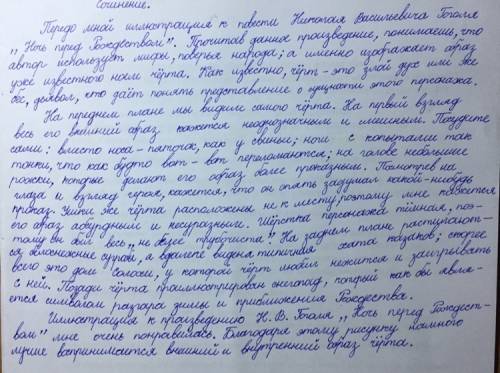 Сочинение.
Передо мной иллюстрация к повести Николая Васильевича Гоголя
„Ночь перед Рождеством". Прочитав данное произведение, понимаешь, что
автор использует мифы, поверья народа; а именно изображает образ
уже известного всем чёрта. Как известно, чёрт - это злой дух или же
бес, дьявол, что даёт понять представление о сущности этого персонажа.
На переднем плане мы видим самого чёрта. На первый взгляд
весь его внешний образ кажется неоднозначным и смешным. Посудите
сами: вместо носа - пяточок, как у свиньи; ноги с копытами так
тонки, что как будто вот-вот переломаются; на голове небольшие
рожки, которые делают его образ более проказным. Посмотрев на
глаза и взгляд героя, кажется, что он опять задумал какой-нибудь
проказ. Уши же чёрта расположены не к месту, поэтому мне кажется
его образ абсурдным и несуразным. Шёрстка персонажа тёмная, поэ-
тому он был весь „не белее трубочиста". На заднем плане расступают-
ся белоснежные сугробы, а вдалеке видна типичная хата казаков; скорее
всего это дом Солохи, у которой чёрт любил нежится и заигрывать
с ней. Позади чёрта проиллюстрирован снегопад, который как бы явля-
ется символом разгара зимы и приближения Рождества.
Иллюстрация к произведению Н. В. Гоголя „Ночь перед Рождест-
вом" мне очень понравилась. Благодаря этому рисунку намного
лучше воспринимается внешний и внутренний образ чёрта.